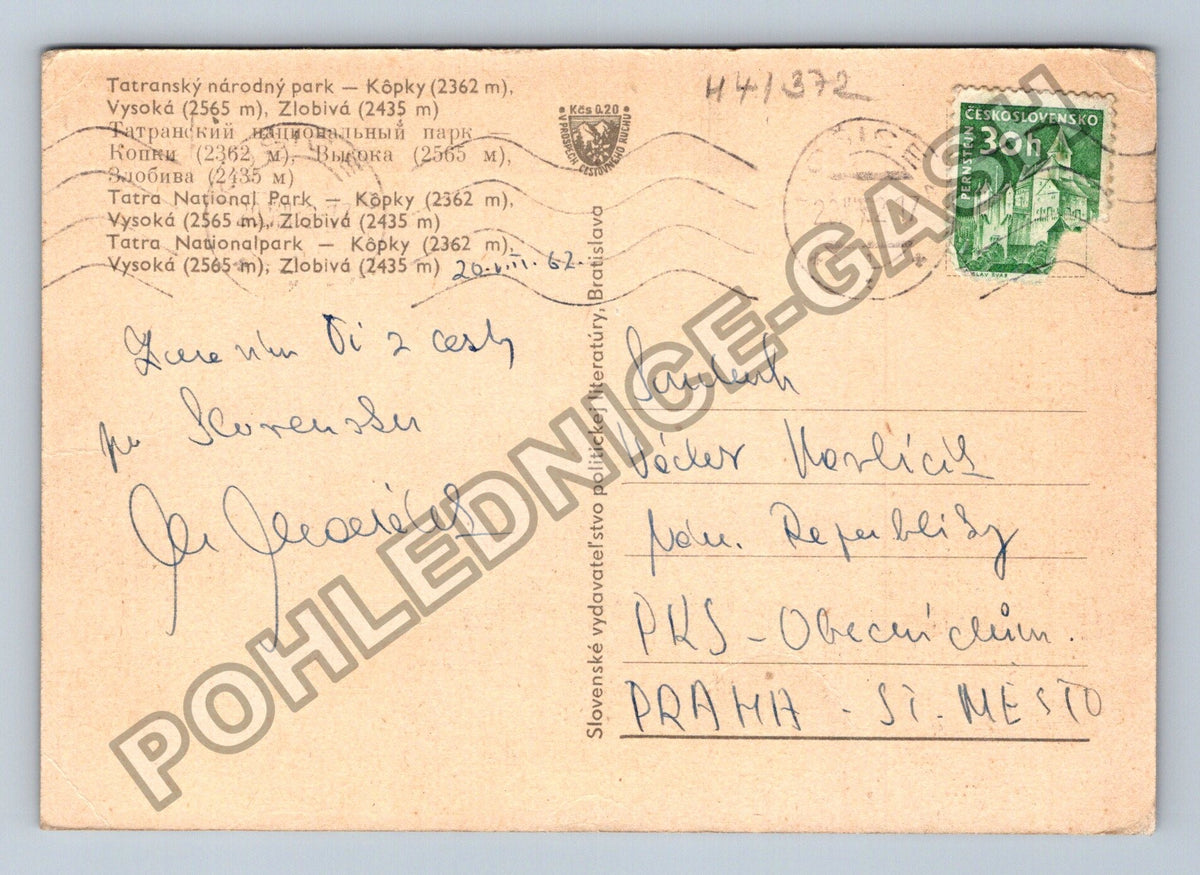 Tatranský národný park — Kôpky (2362 m),
Vysoká (2565 m), Zlobivá (2435 m)
Татранский национальный парк —
Копки (2362 м), Высока (2565 м),
Злобива (2435 м)
Tatra National Park — Kôpky (2362 m),
Vysoká (2565 m), Zlobivá (2435 m)
Tatra Nationalpark — Kôpky (2362 m),
Vysoká (2565 m), Zlobivá (2435 m)
20.VIII.62.
44/372
Kčs 0.20
V PROSPECH CESTOVNÉHO RUCHU
ČESKOSLOVENSKO
30h
PERNŠTEJN
Slovenské vydavateľstvo politickej literatúry, Bratislava
Zdravím Vás z cesty
po Slovensku
Václav Havlíček
Nám. Republiky
PKS - Obecní dům.
PRAHA - ST. MĚSTO
POHLEDNICE-GASH